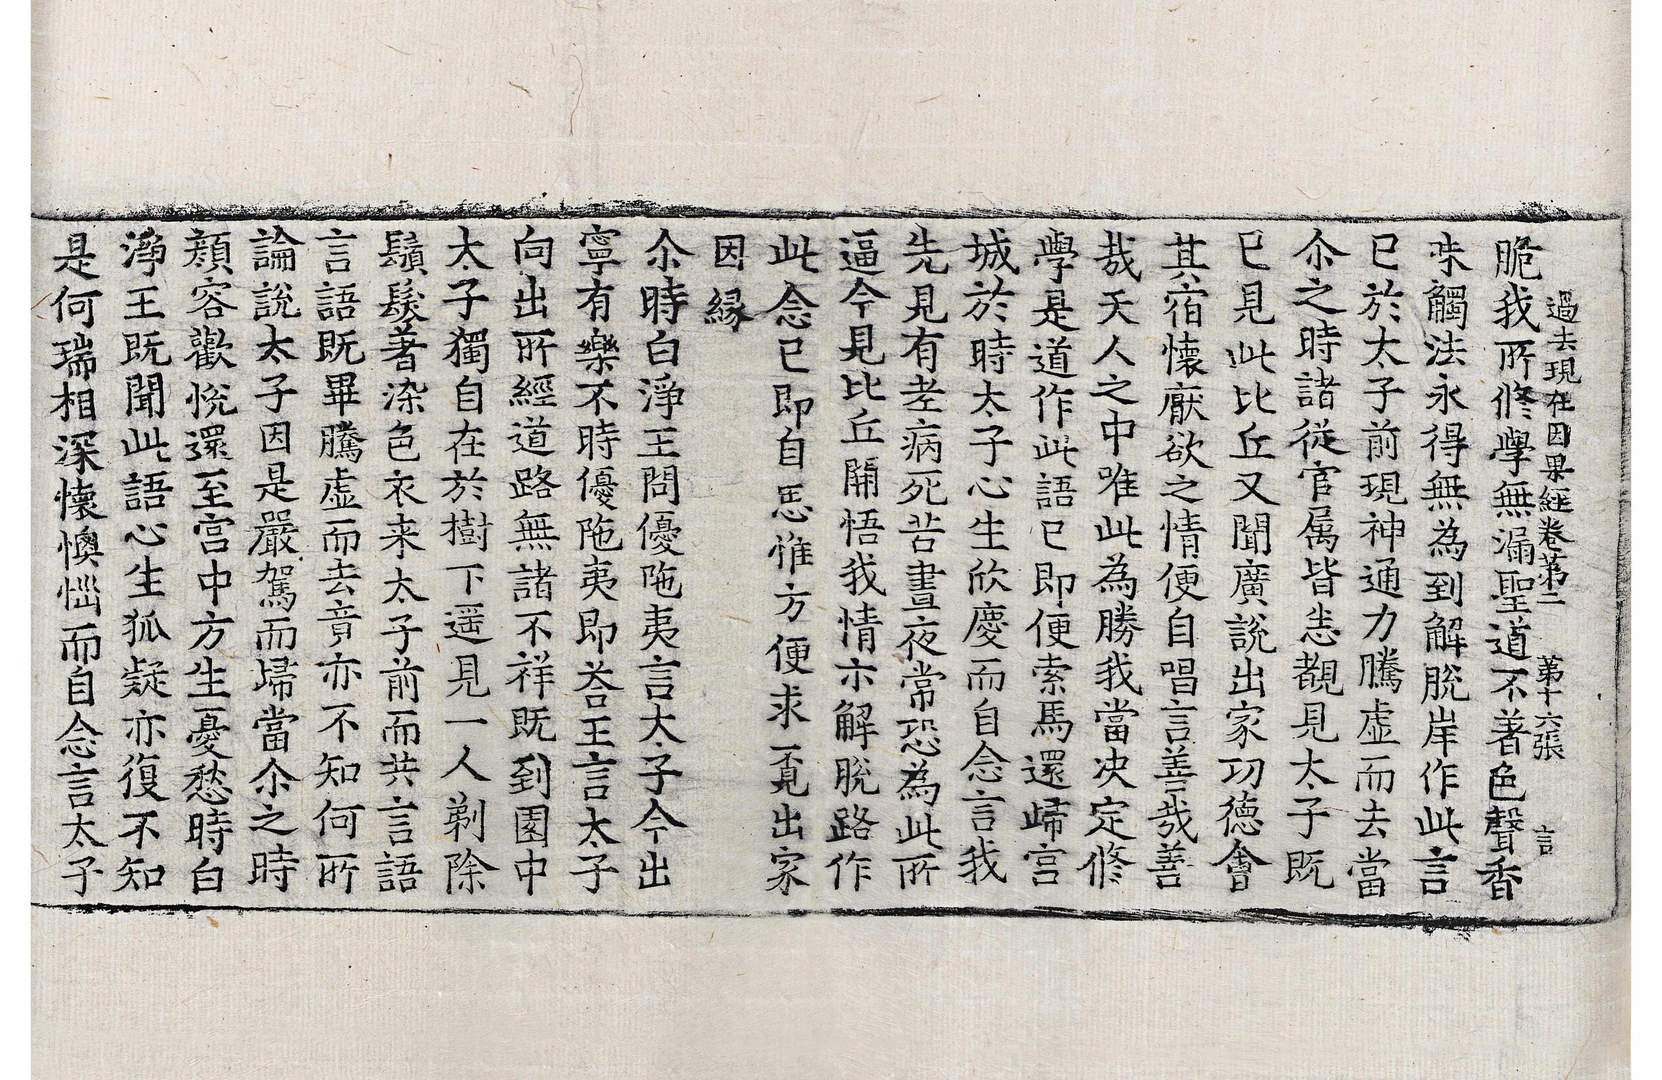 過去現在因果經卷第二 第十六張 言
脆我所修學無漏聖道不著色聲香
味觸法永得無為到解脫岸作此言
已於太子前現神通力騰虛而去當
尒之時諸從官属皆悉覩見太子既
已見此比丘又聞廣說出家功德會
其宿懷厭欲之情便自唱言善哉善
哉天人之中唯此為勝我當决定修
學是道作此語已即便索馬還歸宮
城於時太子心生欣慶而自念言我
先見有老病死苦晝夜常恐為此所
逼今見比丘開悟我情示解脫路作
此念已即自思惟方便求覔出家
因緣
尒時白淨王問優陁夷言太子今出
寧有樂不時優陁夷即荅王言太子
向出所經道路無諸不祥既到園中
太子獨自在於樹下遥見一人剃除
鬚髮著染色衣来太子前而共言語
言語既畢騰虛而去音亦不知何所
論說太子因是嚴駕而歸當尒之時
顏容歡悅還至宮中方生憂愁時白
淨王既聞此語心生狐疑亦復不知
是何瑞相深懷懊惱而自念言太子